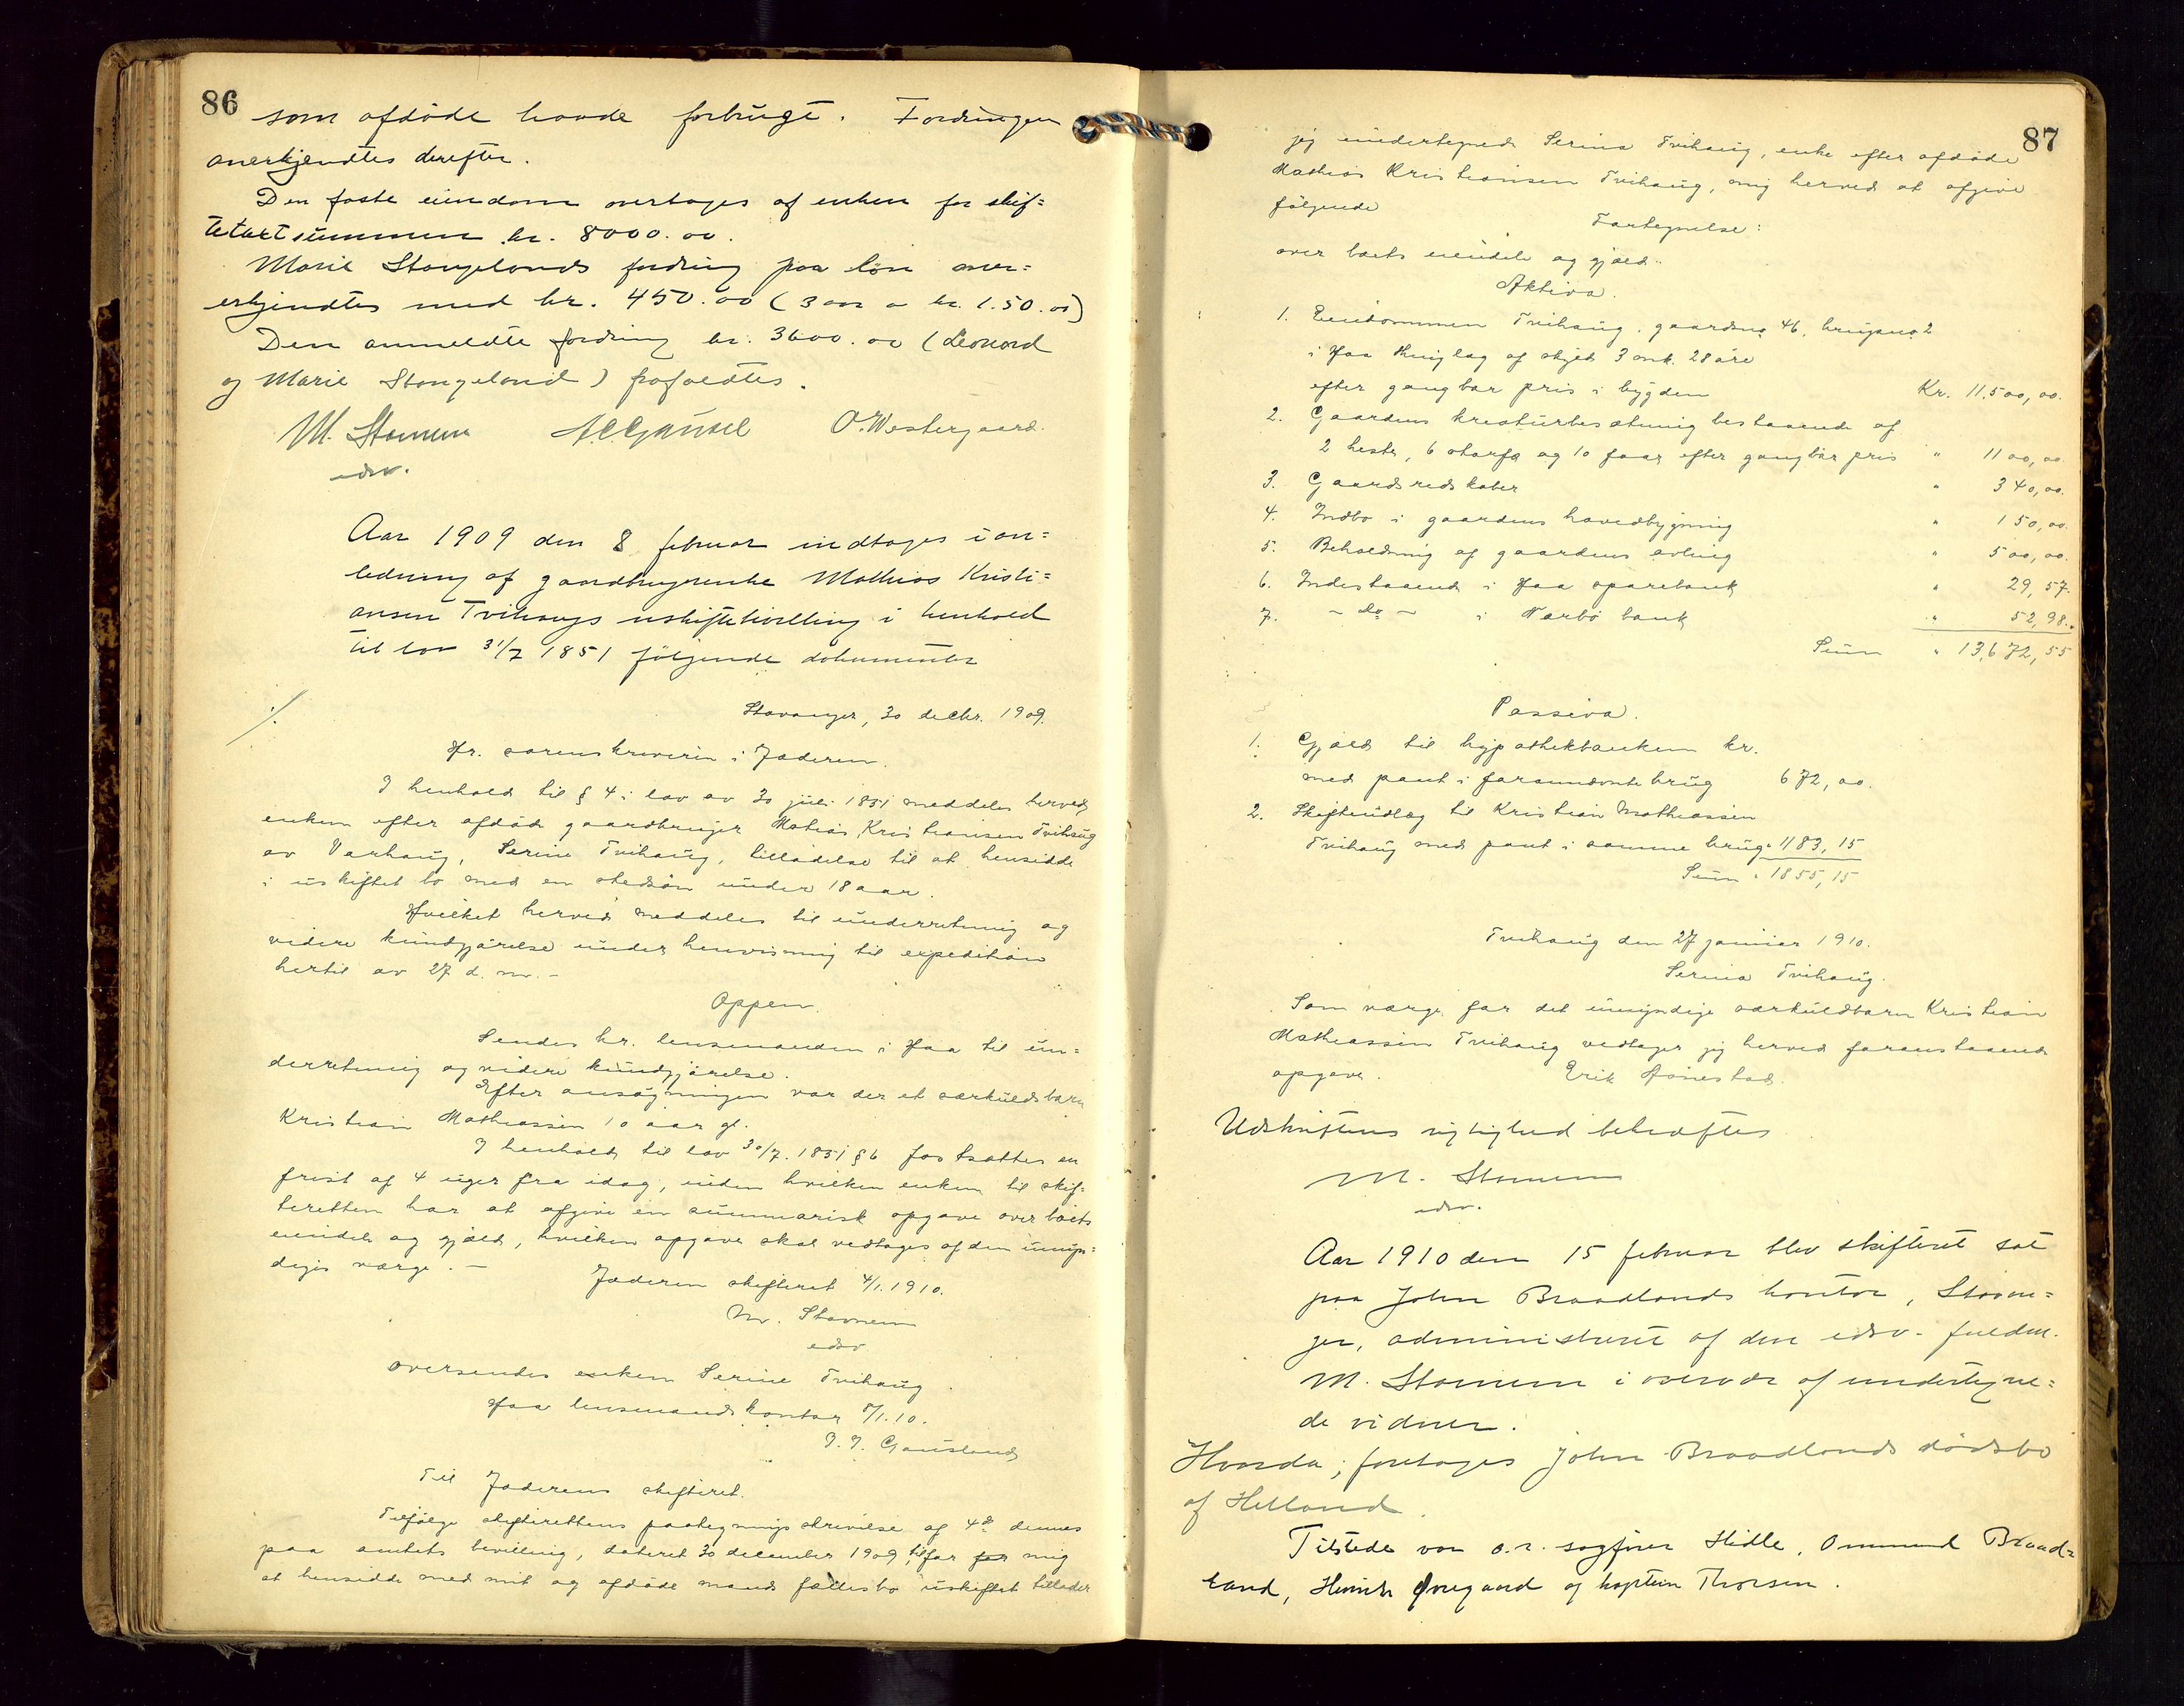 86
som afdöde havde forbrugt. Fordringen
anerkjendtes derefter.
Den faste eiendom overtages af enken for skif=
tetaxtsummen kr. 8000.00.
Marie Stangelands fordring paa løn aner=
erkjendtes med kr. 450.00 (3 aar a kr. 1.50.00)
Den anmeldte fordring kr. 3600.00 (Leonard
og Marie Stangeland) frafaldtes.
M. Stavnem O. Westergaard.
edsv.
Aar 1909 den 8 februar indtages i an=
ledning af gaardbrugerenke Mathias Kristi=
ansen Tvihaugs uskiftebevilling i henhold
til lov 31/7 1851 følgende dokumenter
./.
Stavanger, 30 decbr. 1909.
Hr. sorenskriveren i Jæderen.
I henhold til § 4 i lov av 30 juli 1851 meddeles herved
enken efter afdøde gaardbruger Mathias Kristiansen Tvihaug
av Varhaug, Serine Tvihaug, tilladelse til at hensidde
i uskiftet bo med en stedsøn under 18 aar.
Hvilket herved meddeles til underretning og
videre kundgjørelse under henvisning til expedition
hertil av 27 d. m. –
Oppen.
Sendes hr. lensmanden i Haa til un=
derretning og videre kundgjørelse.
Efter ansøgningen var der et særkuldsbarn
Kristian Mathiassen 10 aar gl.
I henhold til lov 30/7. 1851 § 6 fastsættes en
frist af 4 uger fra idag, inden hvilken enken til skif=
teretten har at afgive en summarisk opgave over boets
eiendele og gjæld, hvilken opgave skal vedtages af den umyn=
diges værge. –
Jæderen skifteret 4/1. 1910.
M. Stavnem
edsv
Oversendes enken Serine Tvihaug.
Haa lensmandskontor 7/1.10.
Gausland
Til Jæderens skifteret.
Tilfølge skifterettens paategningsskrivelse af 4de dennes
paa amtets bevilling, dateret 30 december 1909, til for mig
at hensidde med mit og afdøde mands fællesbo uskiftet tillader
87
jeg undertegnede Serina Tvihaug, enke efter afdøde
Mathias Kristiansen Tvihaug, mig herved at afgive
følgende
Fortegnelse:
over boets eiendele og gjæld.
Aktiva.
1. Eiendommen Tvihaug, gaardsno. 46, brugsno. 2
i Haa thinglag af skyld 3 mk. 28 øre
efter gangbar pris i bygden Kr. 11.500,00.
2. Gaardens kreaturbesætning bestaaende af
2 heste, 6 storfæ og 10 faar efter gangbar pris " 1100,00.
3. Gaardsredskaber " 340,00.
4. Indbo i gaardens hovedbygning " 150,00.
5. Beholdning af gaardens avling " 500,00.
6. Indestaaende i Haa sparebank " 29,57.
7. – do – i Nærbø bank " 52,98.
Sum " 13,672,55
Passiva.
1. Gjæld til hypothekbanken kr.
med pant i forannævnte brug 672,00.
2. Skifteudlæg til Kristian Mathiassen
Tvihaug med pant i samme brug " 1183,15
Sum " 1855,15
Tvihaug den 27 januar 1910.
Serina Tvihaug.
Som værge for det umyndige særkuldbarn Kristian
Mathiassen Tvihaug vedtager jeg herved foranstaaende
opgave. Erik Aanestad.
Udskriftens rigtighed bekræftes
M. Stavnem
edsv.
Aar 1910 den 15 februar blev skifteret sat
paa John Braadlands kontor, Stavan=
ger, administreret af den edsv. fuldm.
M. Stavnem i overvær af undertegne=
de vidner.
Hvorda; foretages John Braadlands dødsbo
af Helland.
Tilstede var o.r. sagfører Hidle, Ommund Braad=
land, Øvregaard og kaptein Thorsen.